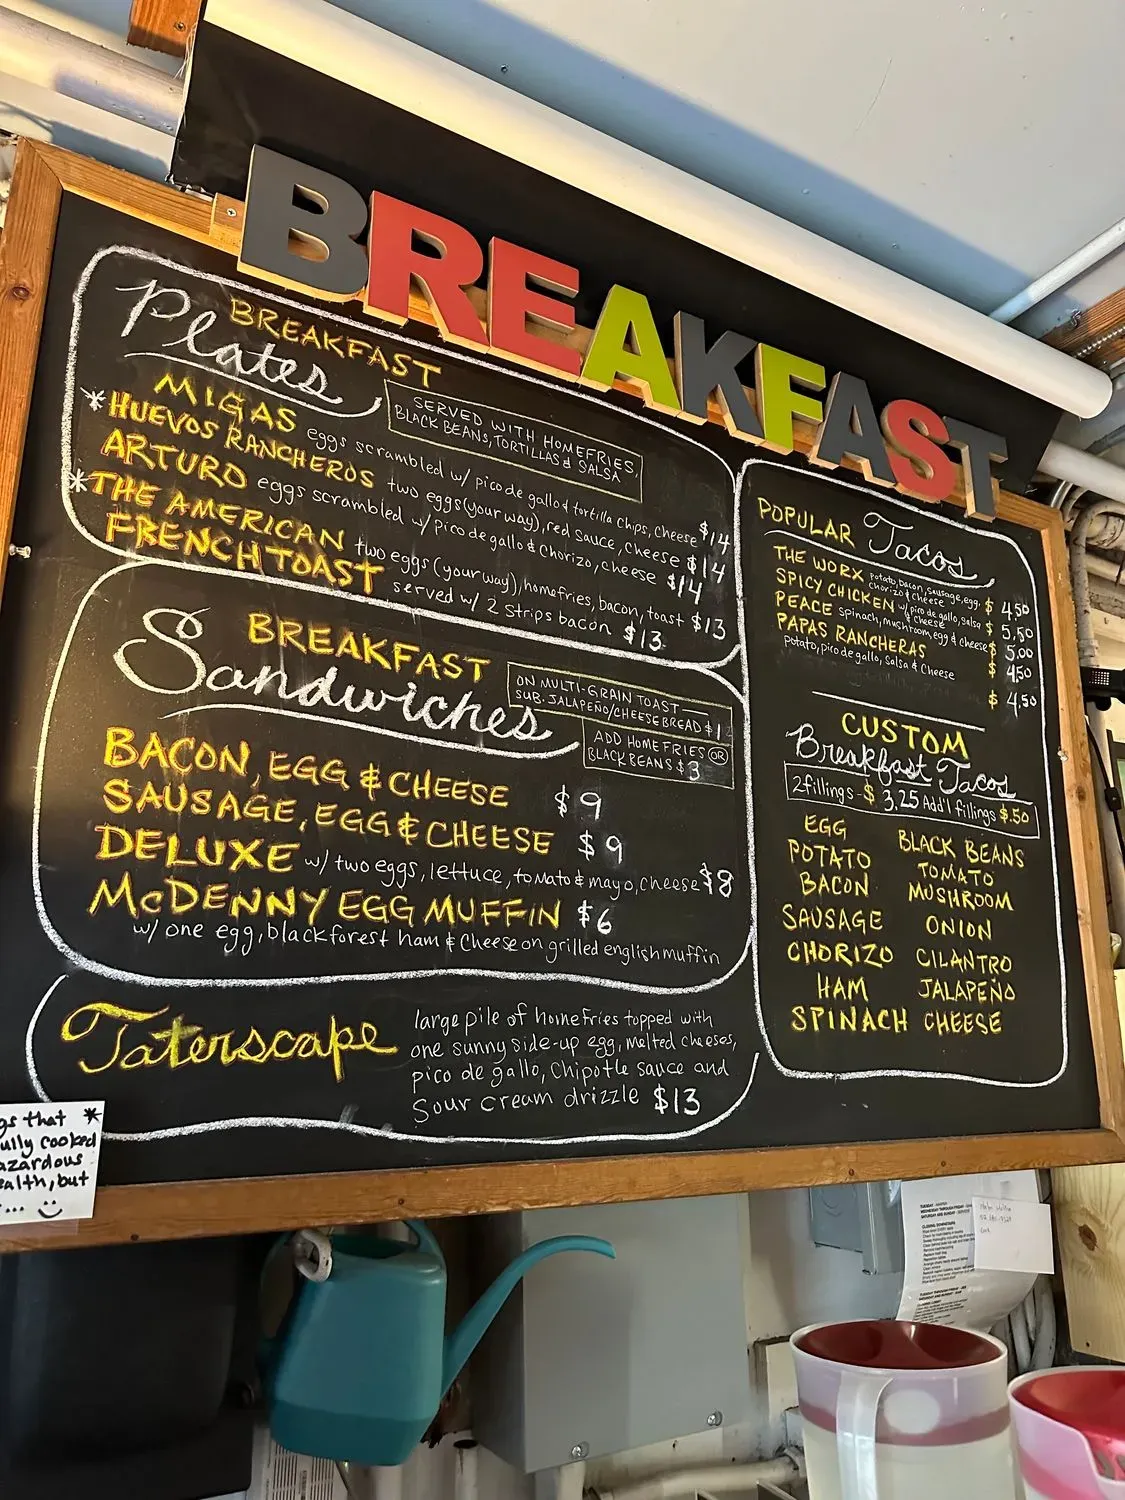 BREAKFAST
BREAKFAST
Plates
SERVED WITH HOMEFRIES,
BLACK BEANS, TORTILLAS & SALSA
MIGAS eggs scrambled w/ pico de gallo & tortilla chips, cheese $14
*HUEVOS RANCHEROS two eggs (your way), red sauce, cheese $14
ARTURO eggs scrambled w/ pico de gallo & chorizo, cheese $14
*THE AMERICAN two eggs (your way), homefries, bacon, toast $13
FRENCH TOAST served w/ 2 strips bacon $13
BREAKFAST
Sandwiches
ON MULTI-GRAIN TOAST
SUB. JALAPEÑO/CHEESE BREAD $1
ADD HOMEFRIES OR
BLACK BEANS $3
BACON, EGG & CHEESE $9
SAUSAGE, EGG & CHEESE $9
DELUXE w/ two eggs, lettuce, tomato & mayo, cheese $8
McDENNY EGG MUFFIN $6
w/ one egg, black forest ham & cheese on grilled english muffin
Taterscape
large pile of homefries topped with
one sunny side-up egg, melted cheeses,
pico de gallo, chipotle sauce and
sour cream drizzle $13
POPULAR Tacos
THE WORX potato, bacon, sausage, egg, $4.50
chorizo & cheese
SPICY CHICKEN w/ pico de gallo, salsa $5.50
& cheese
PEACE spinach, mushroom, egg & cheese $5.00
PAPAS RANCHERAS $4.50
potato, pico de gallo, salsa & cheese
$4.50
CUSTOM
Breakfast Tacos
2 fillings - $3.25 Add'l fillings $.50
EGG
POTATO
BACON
SAUSAGE
CHORIZO
HAM
SPINACH
BLACK BEANS
TOMATO
MUSHROOM
ONION
CILANTRO
JALAPEÑO
CHEESE
gs that *
ully cooked
azardous
ealth, but
...